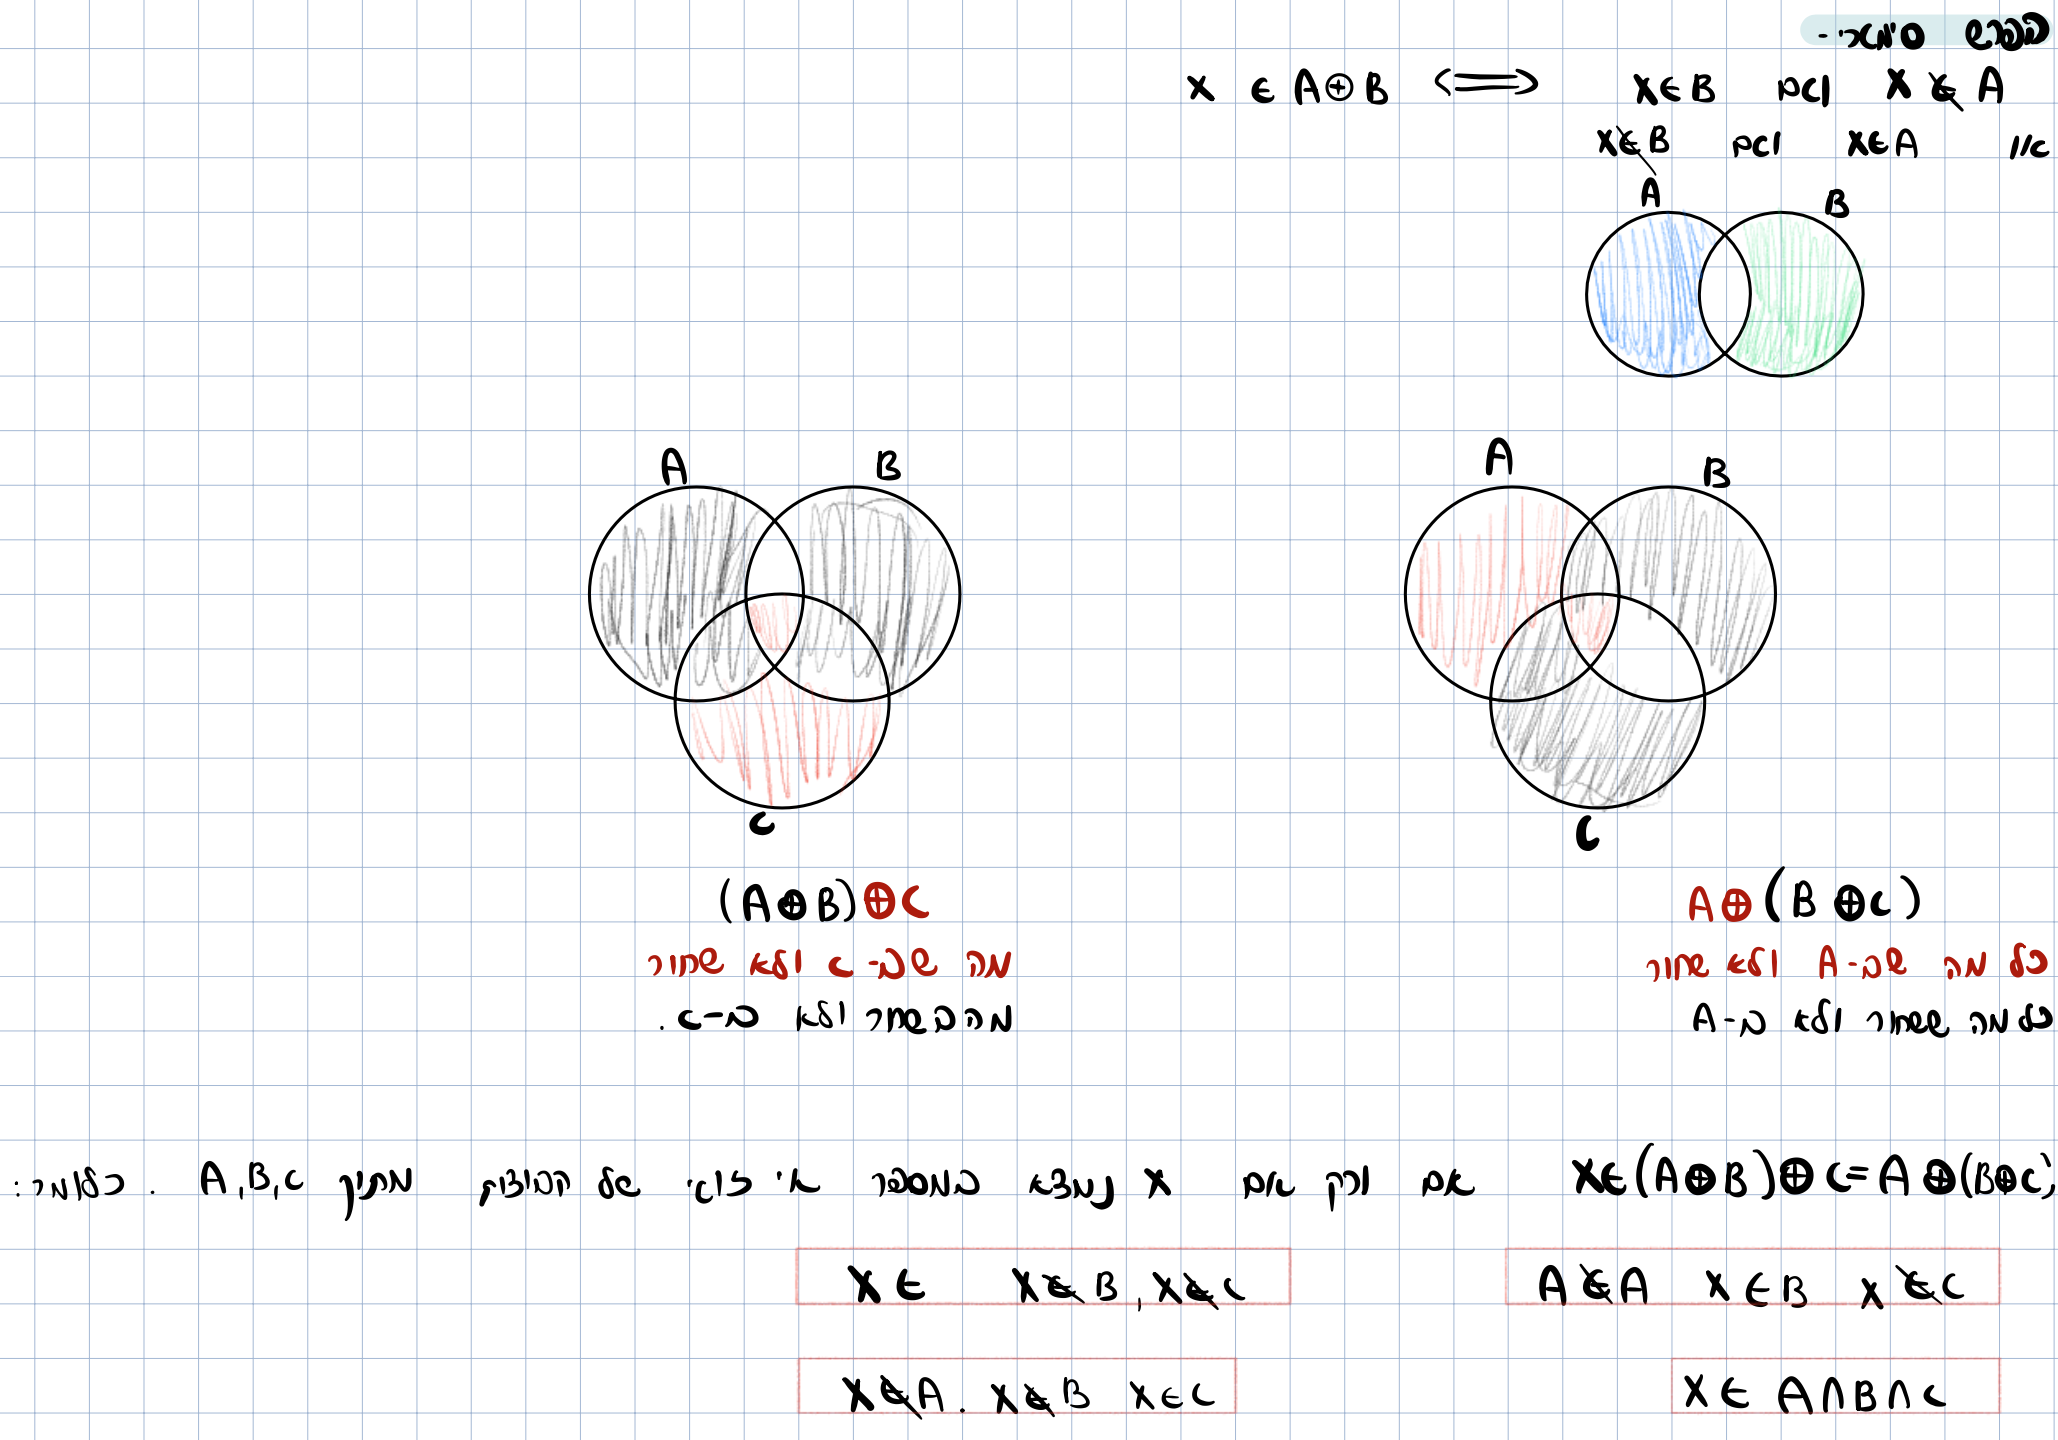 הפרש סימטרי -
x ∈ A⊕B ⟺ x∈B וגם x ∉ A
או x∈A וגם x∉B
A B
A B
C
A B
C
A⊕(B⊕C)
כל מה שב-A ולא שחור
כל מה ששחור ולא ב-A
(A⊕B)⊕C
מה שב-C ולא שחור
מה בשחור ולא ב-C.
x∈(A⊕B)⊕C=A⊕(B⊕C) אם ורק אם x נמצא במספר אי זוגי של קבוצות מתוך A,B,C. כלומר:
A∉A x∈B x∉C
x∈ x∉B, x∉C
x∈ A∩B∩C
x∉A. x∉B x∈C